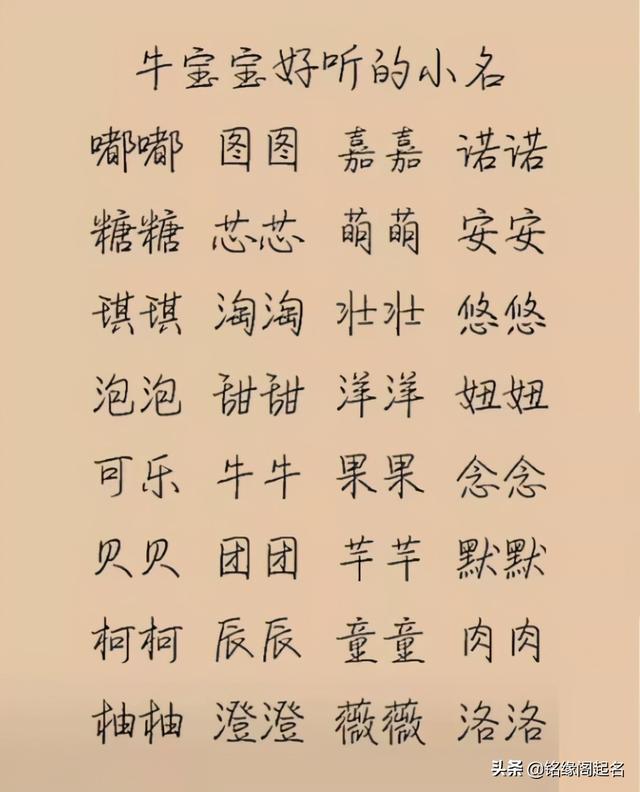 牛宝宝好听的小名
嘟嘟 图图 嘉嘉 诺诺
糖糖 芯芯 萌萌 安安
琪琪 淘淘 壮壮 悠悠
泡泡 甜甜 洋洋 妞妞
可乐 牛牛 果果 念念
贝贝 团团 芊芊 默默
柯柯 辰辰 童童 肉肉
柚柚 澄澄 薇薇 洛洛
头条 @铭缘阁起名